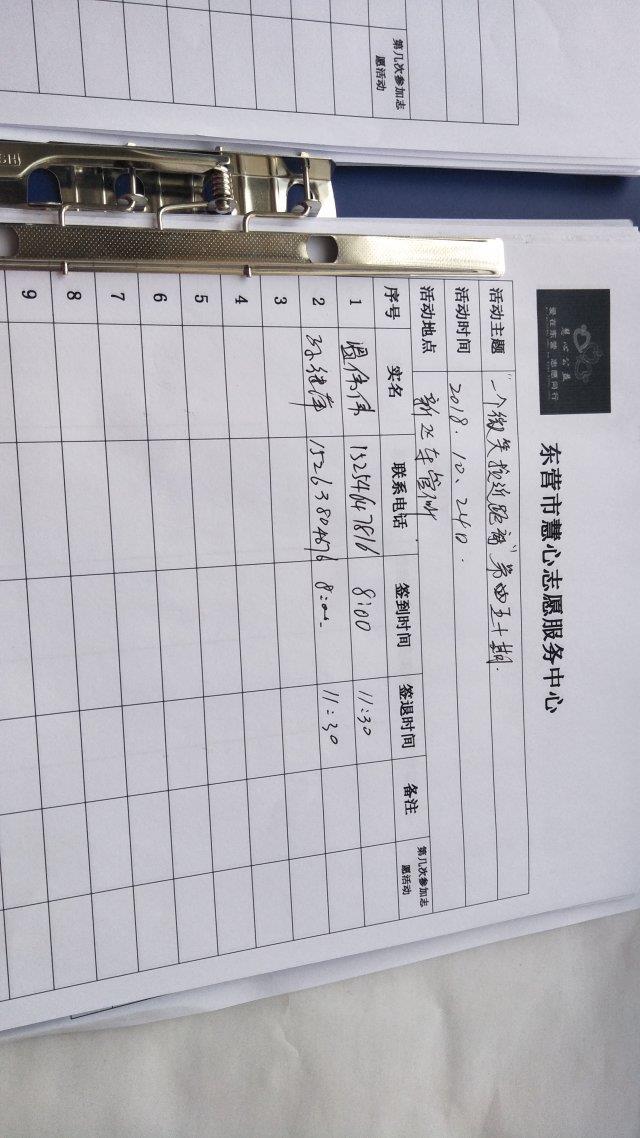 第几次参加志
愿活动
慧心公益
爱在东营 志愿同行
东营市慧心志愿服务中心
活动主题 "一个微笑拉近距离"第四五十期.
活动时间 2018.10.24日.
活动地点 新区车管所
序号 实名 联系电话 签到时间 签退时间 备注 第几次参加志
愿活动
1 伟伟 13254647816 8:00 11:30
2 孙继革 15263804676 8:00 11:30
3
4
5
6
7
8
9